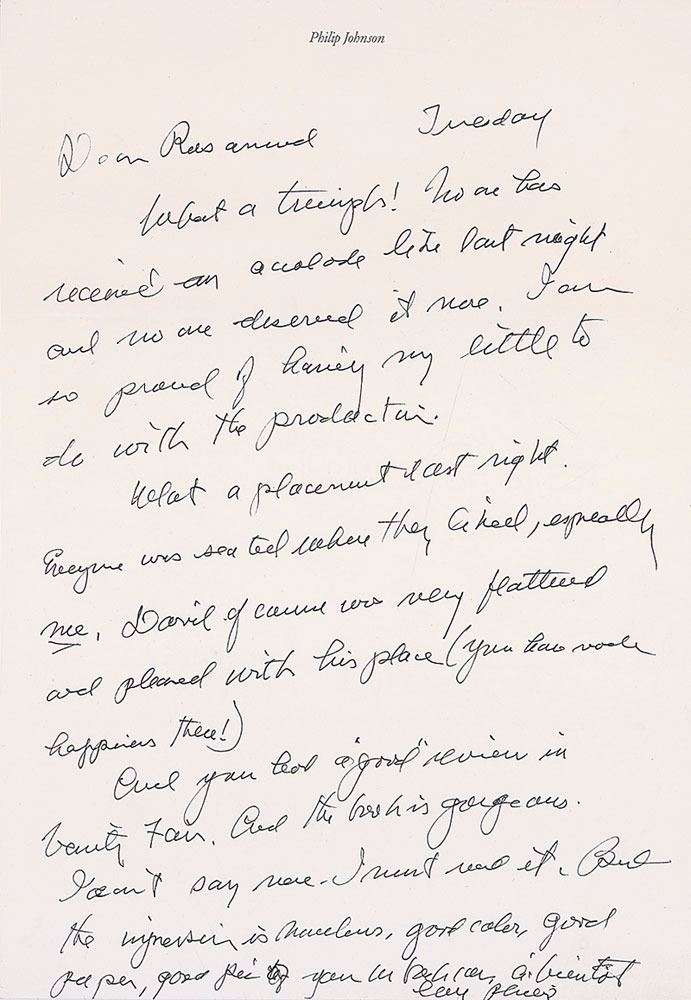 Philip Johnson
Tuesday
Dear Rosamund
What a triumph! No one has
received an accolade like last night
and no one deserved it more. I am
so proud of having my little to
do with the production.
What a placement last night.
Everyone was seated where they liked, especially
me. David of course was very flattered
and pleased with his place (you have made
happiness there!)
And you had a "good" review in
Vanity Fair. And the book is gorgeous.
I can't say more. I must read it. But
the impression is marvelous, good color, good
paper, good pic of you in à bientôt
Love Philip